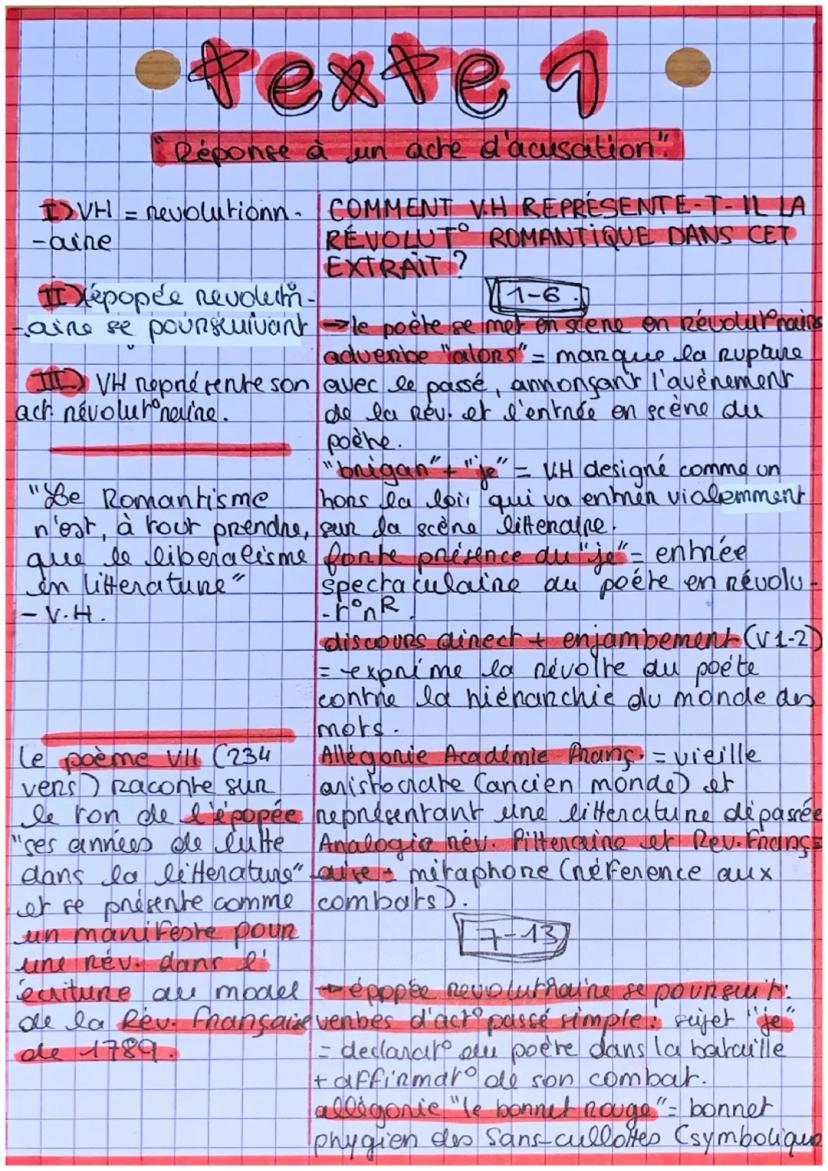 texte 1
"Réponse à un acte d'acusation".
I) VH = revolutionn-
-aire
II) épopée revolut°n-
-aire se poursuivant
III) VH représente son
act. révolut°naire.
"Le Romantisme
n'est, à tout prendre,
que le liberalisme
en litterature"
- V.H.
Le poème VII (234
vers) raconte sur
le ton de l'épopée
"ses années de lutte
dans la litterature"
et se présente comme
un manifeste pour
une rév. dans l'
écriture au model
de la Rév. Française
de 1789.
COMMENT V.H REPRÉSENTE-T-IL LA
RÉVOLUT° ROMANTIQUE DANS CET
EXTRAIT ?
1-6
→ le poète se met en scène en révolut°naire
adverbe "alors" = marque la rupture
avec le passé, annonçant l'avènement
de la Rév. et l'entrée en scène du
poète.
"brigan" + "je" = VH designé comme un
hors la loi qui va entrer vialemment
sur la scène litteraire.
forte présence du "je" = entrée
spectaculaire du poète en révolu-
-t°nR.
discours direct + enjambement (V1-2)
= exprime la révolte du poète
contre la hiérarchie du monde des
mots.
Allégorie Académie Franç. = vieille
aristocrate (ancien monde) et
représentant une litterature dépassée
Analogie rév. litteraire et Rev. Franç=
aise = métaphore (référence aux
combats).
7-13
→ épopée revolut°naire se poursuit:
verbes d'act° passé simple : sujet "je"
= declarat° du poète dans la bataille
+ affirmat° de son combat.
allégorie "le bonnet rouge" = bonnet
phygien des Sans-cullottes (symbolique